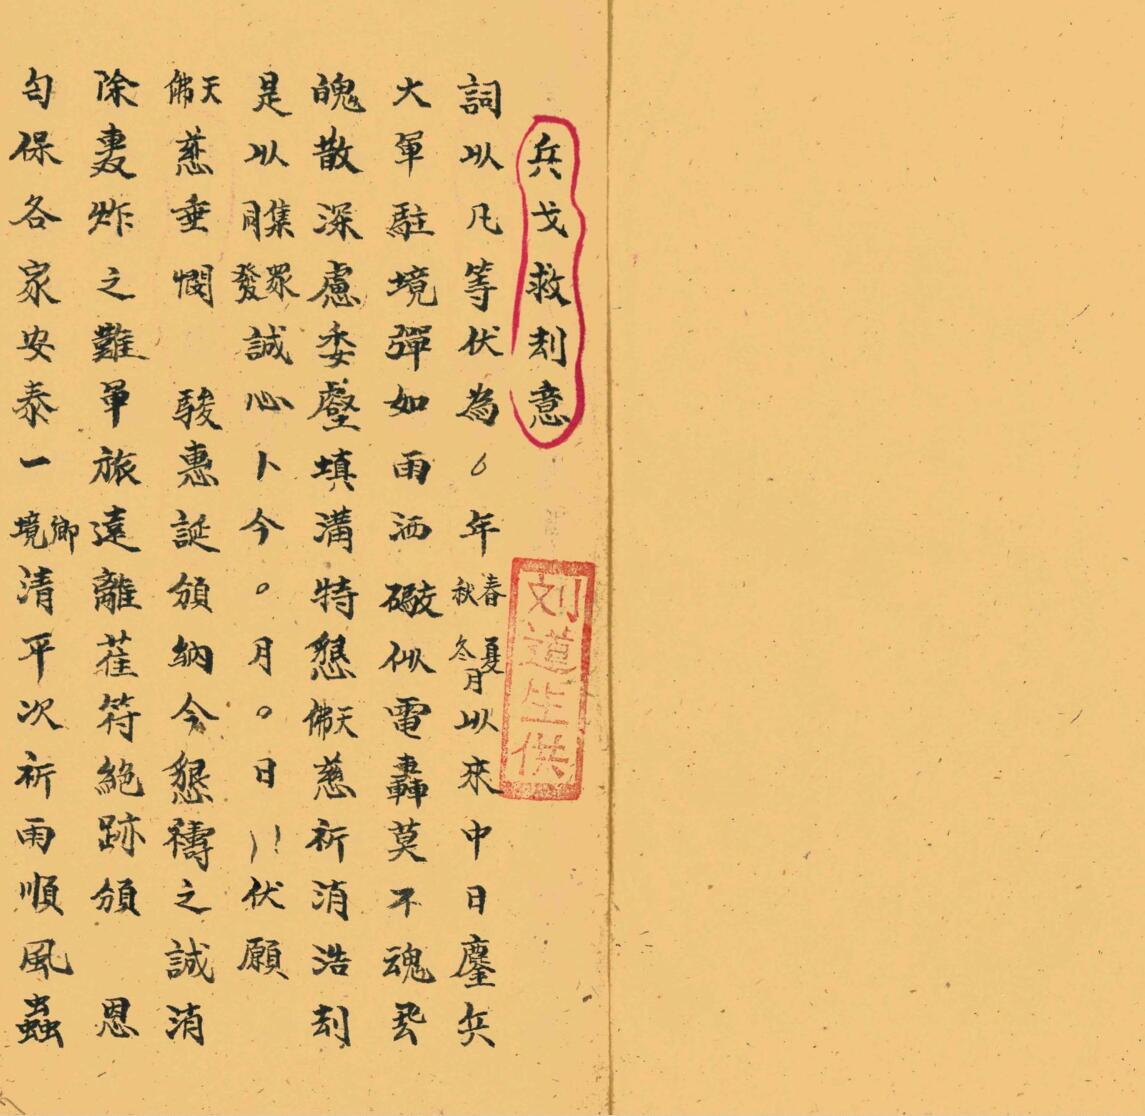 兵戈救刼意
刘道生供
詞以凡等伏為〇年春秋夏冬月以來中日鏖兵
大軍駐境彈如雨洒礮似電轟莫不魂飛
魄散深慮委壑填溝特懇天佛慈祈消浩刼
是以集同眾發誠心卜今〇月〇日伏願
天佛慈垂憫 駿惠誕頒納今懇禱之誠消
除轟炸之難軍旅遠離萑符絕跡頒 恩
匀保各家安泰一鄉境清平次祈雨順風蟲